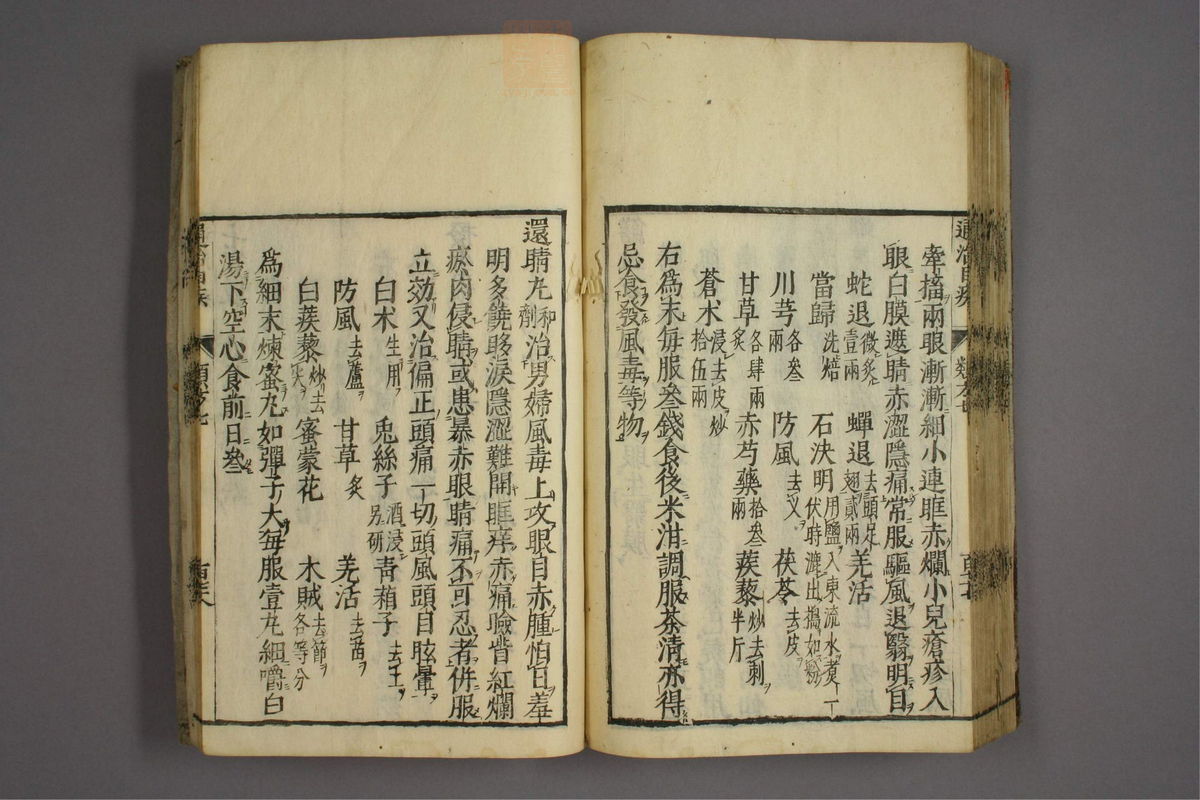 通治目疾
類卷七
牽搐兩眼漸漸細小連眶赤爛小兒瘡疹入
眼白膜遮睛赤澀隱痛常服驅風退翳明目
蛇退微炙壹兩 蟬退去頭足翅貳兩 羌活
當歸洗焙 石決明用鹽入東流水煮一伏時漉出搗如粉
川芎各叁兩 防風去叉 茯苓去皮
甘草炙各肆兩 赤芍藥拾叁兩 蒺藜炒去刺半斤
蒼朮浸去皮炒拾伍兩
右爲末每服叁錢食後米泔調服茶清亦得
忌食發風毒等物
還睛丸和劑治男婦風毒上攻眼目赤腫怕日羞
明多饒眵淚隱澀難開眶痒赤痛瞼眥紅爛
瘀肉侵睛或患暴赤眼睛痛不可忍者併服
立効又治偏正頭痛一切頭風頭目眩暈
白朮生用 兎絲子酒浸另研 青葙子去土
防風去蘆 甘草炙 羌活去苗
白蒺藜炒去尖 蜜蒙花 木賊去節各等分
爲細末煉蜜丸如彈子大每服壹丸細嚼白
湯下空心食前日叁